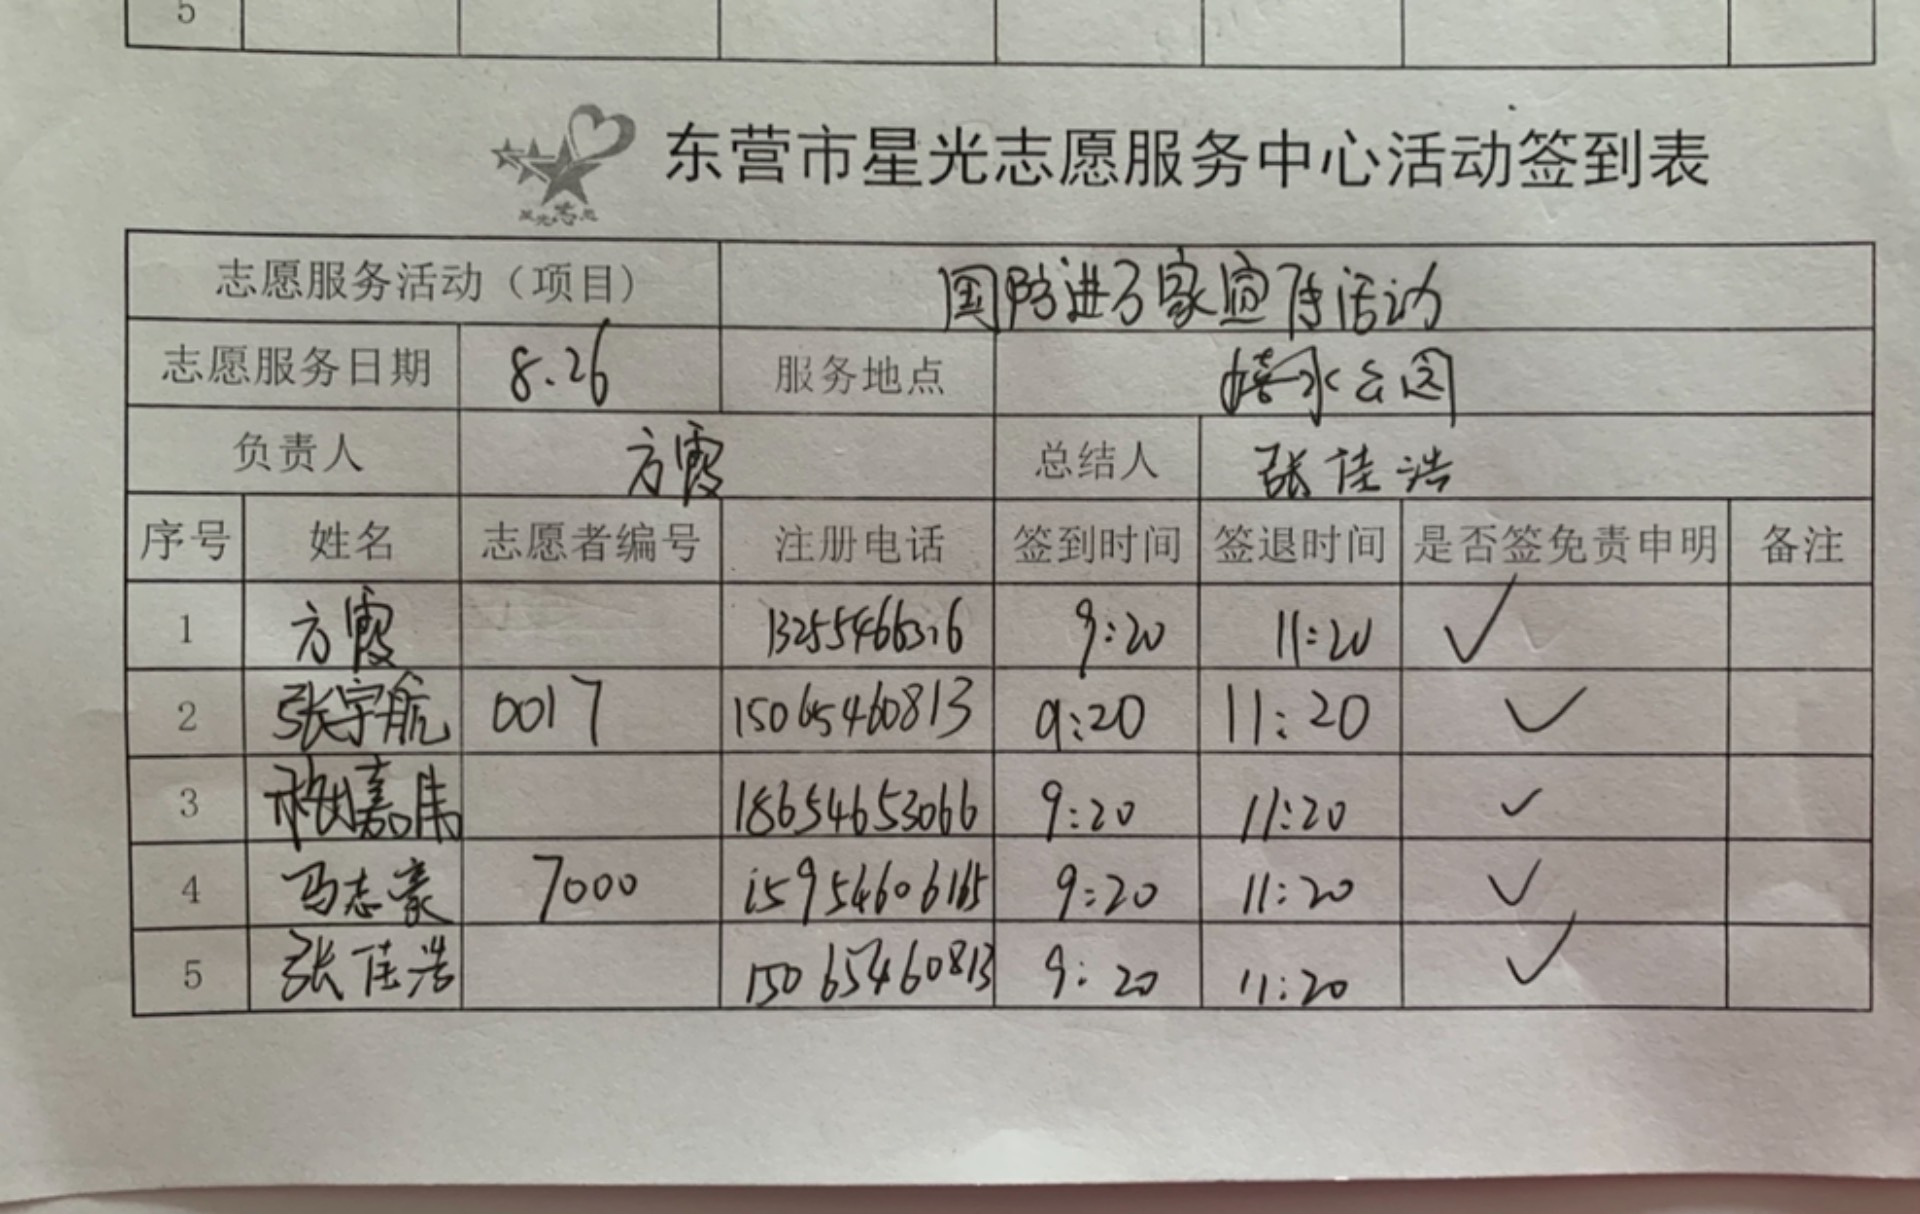 5
东营市星光志愿服务中心活动签到表
星光志愿
志愿服务活动（项目） 国防进万家宣传活动
志愿服务日期 8.26 服务地点 水公园
负责人 方霞 总结人 张佳浩
序号 姓名 志愿者编号 注册电话 签到时间 签退时间 是否签免责申明 备注
1 方霞 9:20 11:20 ✓
2 张宇航 0017 15065460813 9:20 11:20 ✓
3 18654653066 9:20 11:20 ✓
4 马志豪 7000 15954606165 9:20 11:20 ✓
5 张佳浩 15065460813 9:20 11:20 ✓